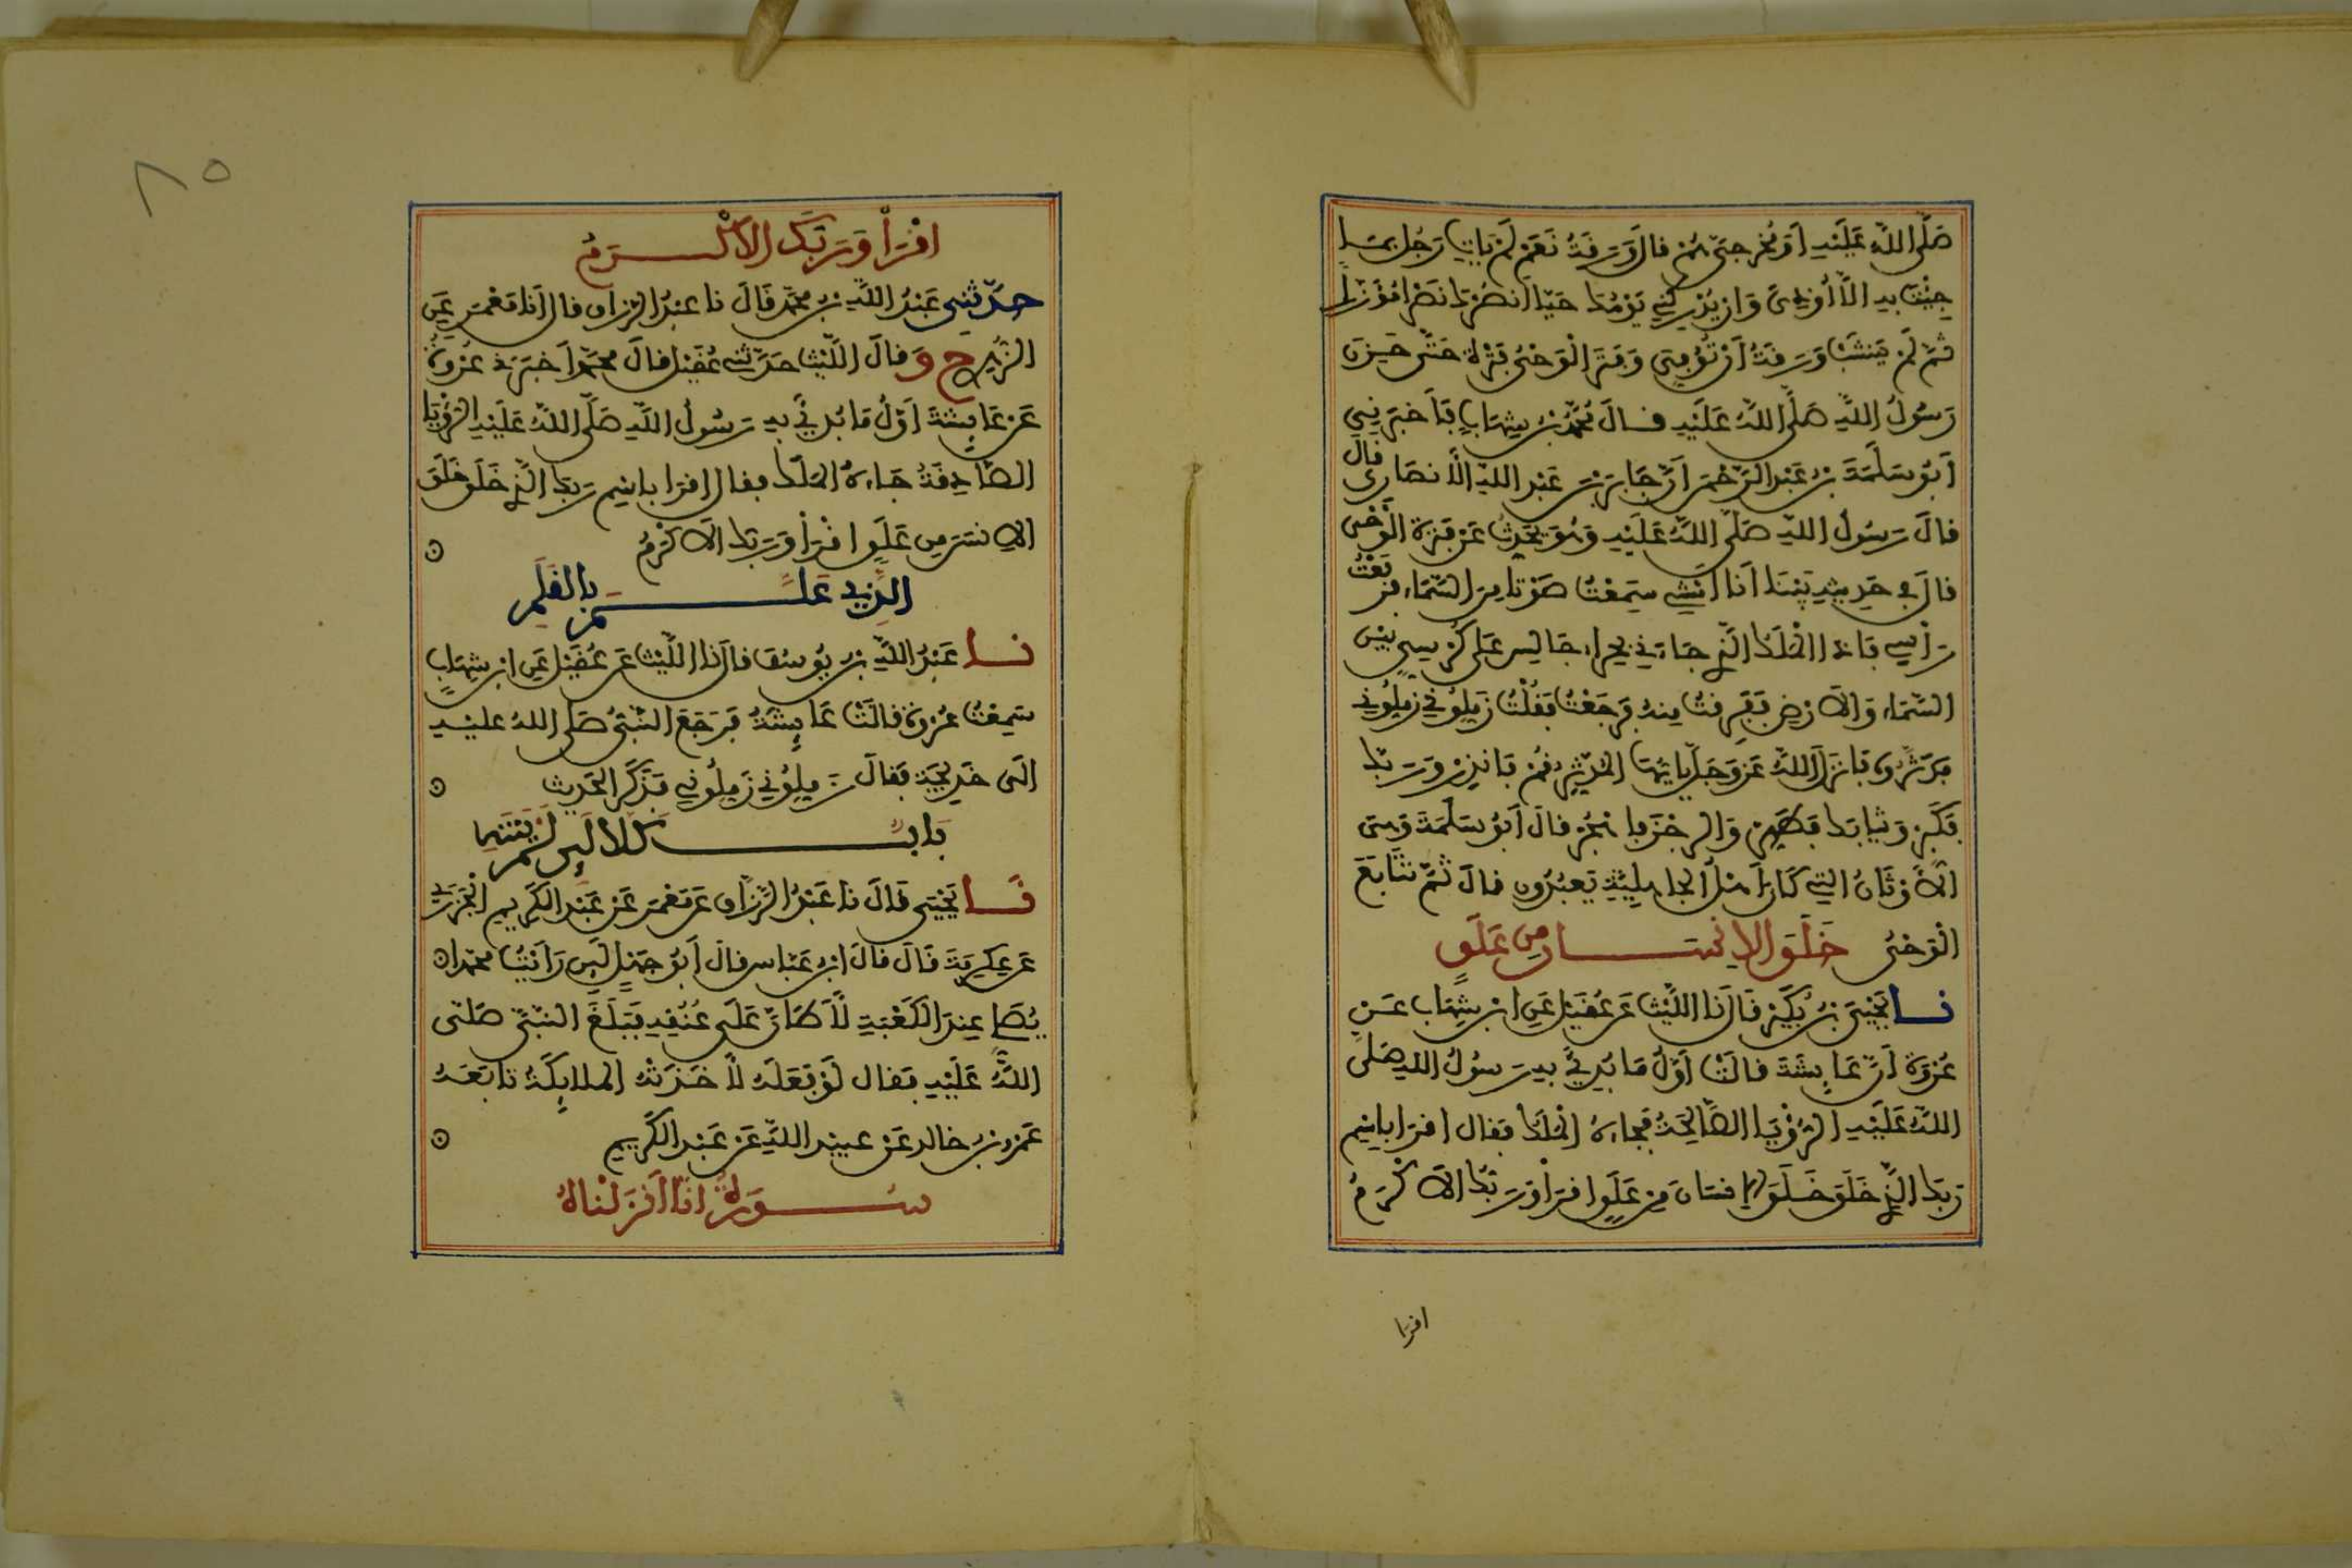 صَلَّى اللَّهُ عَلَيْهِ أَوَمُخْرِجِيَّ هُمْ قَالَ وَرَقَةُ نَعَمْ لَمْ يَاتِ رَجُلٌ بِمَا
جِئْتَ بِهِ اِلَّا أُوذِيَ وَاِنْ يُدْرِكْنِي يَوْمُكَ حَيًّا اَنْصُرْكَ نَصْرًا مُؤَزَّرًا
ثُمَّ لَمْ يَنْشَبْ وَرَقَةُ أَنْ تُوُفِّيَ وَفَتَرَ الْوَحْيُ فَتْرَةً حَتَّى حَزِنَ
رَسُولُ اللَّهِ صَلَّى اللَّهُ عَلَيْهِ قَالَ مُحَمَّدُ بْنُ شِهَابٍ فَأَخْبَرَنِي
أَبُو سَلَمَةَ بْنُ عَبْدِ الرَّحْمَنِ أَنَّ جَابِرَ بْنَ عَبْدِ اللَّهِ الْأَنْصَارِيَّ قَالَ
قَالَ رَسُولُ اللَّهِ صَلَّى اللَّهُ عَلَيْهِ وَهُوَ يُحَدِّثُ عَنْ فَتْرَةِ الْوَحْيِ
قَالَ فِي حَدِيثِهِ بَيْنَا أَنَا أَمْشِي سَمِعْتُ صَوْتًا مِنَ السَّمَاءِ فَرَفَعْتُ
رَأْسِي فَإِذَا الْمَلَكُ الَّذِي جَاءَنِي بِحِرَاءٍ جَالِسٌ عَلَى كُرْسِيٍّ بَيْنَ
السَّمَاءِ وَالْأَرْضِ فَفَرِقْتُ مِنْهُ فَرَجَعْتُ فَقُلْتُ زَمِّلُونِي زَمِّلُونِي
فَدَثَّرُوهُ فَأَنْزَلَ اللَّهُ عَزَّ وَجَلَّ يَا أَيُّهَا الْمُدَّثِّرُ قُمْ فَأَنْذِرْ وَرَبَّكَ
فَكَبِّرْ وَثِيَابَكَ فَطَهِّرْ وَالرِّجْزَ فَاهْجُرْ قَالَ أَبُو سَلَمَةَ وَهِيَ
الْأَوْثَانُ الَّتِي كَانَ أَهْلُ الْجَاهِلِيَّةِ يَعْبُدُونَ قَالَ ثُمَّ تَتَابَعَ
الْوَحْيُ خَلَقَ الْاِنْسَانَ مِنْ عَلَقٍ
نا يَحْيَى بْنُ بُكَيْرٍ قَالَ نَا اللَّيْثُ عَنْ عُقَيْلٍ عَنِ ابْنِ شِهَابٍ عَنْ
عُرْوَةَ أَنَّ عَائِشَةَ قَالَتْ أَوَّلُ مَا بُدِئَ بِهِ رَسُولُ اللَّهِ صَلَّى
اللَّهُ عَلَيْهِ الرُّؤْيَا الصَّالِحَةُ فَجَاءَهُ الْمَلَكُ فَقَالَ اقْرَا بِاسْمِ
رَبِّكَ الَّذِي خَلَقَ خَلَقَ الْإِنْسَانَ مِنْ عَلَقٍ اقْرَأْ وَرَبُّكَ الْأَكْرَمُ
اقرا
٨٥
اقْرَأْ وَرَبُّكَ الْأَكْرَمُ
حَدَّثَنِي عَبْدُ اللَّهِ بْنُ مُحَمَّدٍ قَالَ نا عَبْدُ الرَّزَّاقِ قَالَ أَنَا مَعْمَرٌ عَنِ
الزُّهْرِيِّ ح وَقَالَ اللَّيْثُ حَدَّثَنِي عُقَيْلٌ قَالَ مُحَمَّدٌ أَخْبَرَنِي عُرْوَةُ
عَنْ عَائِشَةَ أَوَّلُ مَا بُدِئَ بِهِ رَسُولُ اللَّهِ صَلَّى اللَّهُ عَلَيْهِ الرُّؤْيَا
الصَّادِقَةُ جَاءَهُ الْمَلَكُ فَقَالَ اقْرَا بِاسْمِ رَبِّكَ الَّذِي خَلَقَ خَلَقَ
الْإِنْسَنَ مِنْ عَلَقٍ اقْرَأْ وَرَبُّكَ الْأَكْرَمُ
الَّذِي عَلَّمَ بِالْقَلَمِ
نا عَبْدُ اللَّهِ بْنُ يُوسُفَ قَالَ نَا اللَّيْثُ عَنْ عُقَيْلٍ عَنِ ابْنِ شِهَابٍ
سَمِعْتُ عُرْوَةَ قَالَتْ عَائِشَةُ فَرَجَعَ النَّبِيُّ صَلَّى اللهُ عَلَيْهِ
اِلَى خَدِيجَةَ فَقَالَ زَمِّلُونِي زَمِّلُونِي فَذَكَرَ الْحَدِيثَ
بَابٌ كَلَّا لَئِنْ لَمْ يَنْتَهِ
نا يَحْيَى قَالَ نا عَبْدُ الرَّزَّاقِ عَنْ مَعْمَرٍ عَنْ عَبْدِ الْكَرِيمِ الْجَزَرِيِّ
عَنْ عِكْرِمَةَ قَالَ قَالَ ابْنُ عَبَّاسٍ قَالَ أَبُو جَهْلٍ لَئِنْ رَأَيْتُ مُحَمَّدًا
يُصَلِّي عِنْدَ الْكَعْبَةِ لَأَطَأَنَّ عَلَى عُنُقِهِ فَبَلَغَ النَّبِيَّ صَلَّى
اللَّهُ عَلَيْهِ فَقَالَ لَوْ فَعَلَهُ لَأَخَذَتْهُ الْمَلَائِكَةُ تَابَعَهُ
عَمْرُو بْنُ خَالِدٍ عَنْ عُبَيْدِ اللَّهِ عَنْ عَبْدِ الْكَرِيمِ
سُورَةُ اِنَّا أَنْزَلْنَاهُ